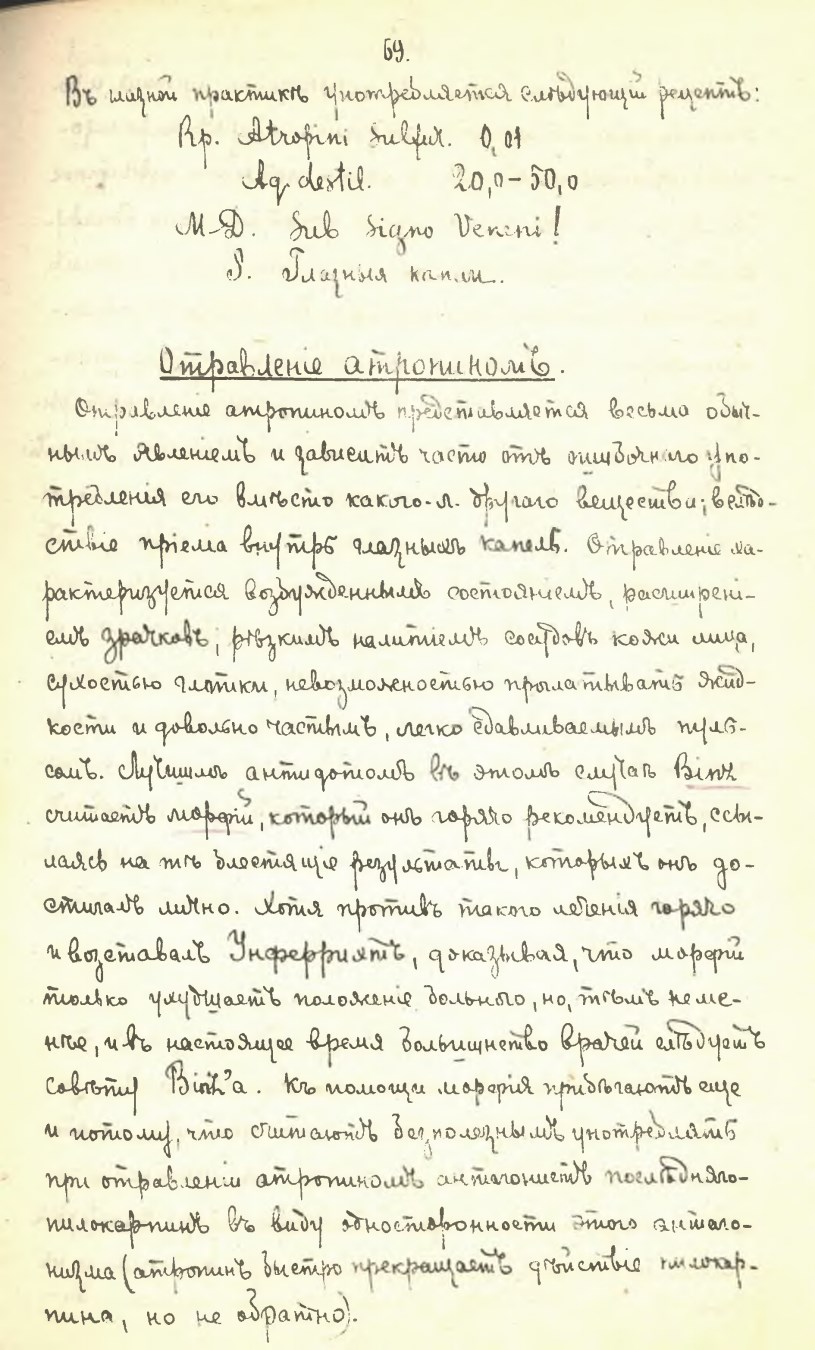 69.
Въ глазной практикѣ употребляется слѣдующій рецептъ:
Rp. Atropini Sulfur. 0,01
Aq. destil. 20,0–50,0
M–D. Sub Signo Veneni!
S. Глазныя капли.
Отравленіе атропиномъ.
Отравленіе атропиномъ представляется весьма обыч-
нымъ явленіемъ и зависитъ часто отъ ошибочнаго упо-
требленія его вмѣсто какого-л. другаго вещества; вслѣд-
ствіе пріема внутрь глазныхъ капель. Отравленіе ха-
рактеризуется возбужденнымъ состояніемъ, расширені-
емъ зрачковъ, рѣзкимъ налитіемъ сосудовъ кожи лица,
сухостью глотки, невозможностью проглатывать жид-
кости и довольно частымъ, легко сдавливаемымъ пуль-
сомъ. Лучшимъ антидотомъ въ этомъ случаѣ Binz
считаетъ морфій, который онъ горячо рекомендуетъ, ссы-
лаясь на тѣ блестящіе результаты, которыхъ онъ до-
стигалъ лично. Хотя противъ такого леченія горячо
и возставалъ Унферрихтъ, доказывая, что морфій
только ухудшаетъ положеніе больного, но, тѣмъ неме-
нѣе, и въ настоящее время большинство врачей слѣдуетъ
совѣту Binz’а. Къ помощи морфія прибѣгаютъ еще
и потому, что считаютъ безполезнымъ употреблять
при отравленіи атропиномъ антагонистъ послѣдняго-
пилокарпинъ въ виду односторонности этого антаго-
низма (атропинъ быстро прекращаетъ дѣйствіе пилокар-
пина, но не обратно).